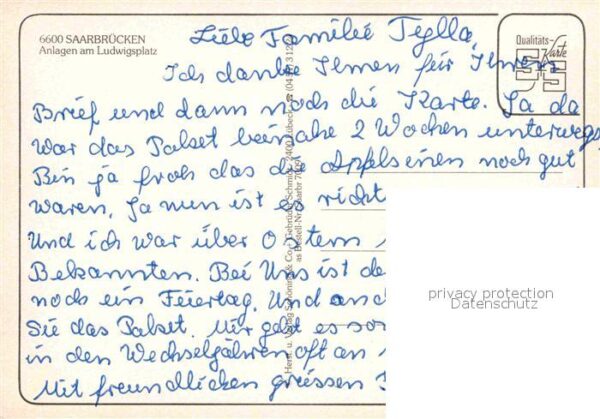 6600 SAARBRÜCKEN
Anlagen am Ludwigsplatz
Qualitäts-Karte
Liebe Familie Teglla,
Ich danke Ihnen für Ihren
Brief und dann noch die Karte. Ja da
war das Paket beinahe 2 Wochen unterwegs,
Bin ja froh das die Apfelseinen noch gut
waren. Ja nun ist es
Und ich war über Ostern
Bekannten. Bei Uns ist de
noch ein Feiertag. Und
Sie das Paket. Mir geht es
in den Wechseljahren oft an
Mit freundlichen griessen
Herst. u. Verlag Schöning & Co · Gebrüder Schmidt, 2400 Lübeck
as Bestell-Nr.
privacy protection
Datenschutz